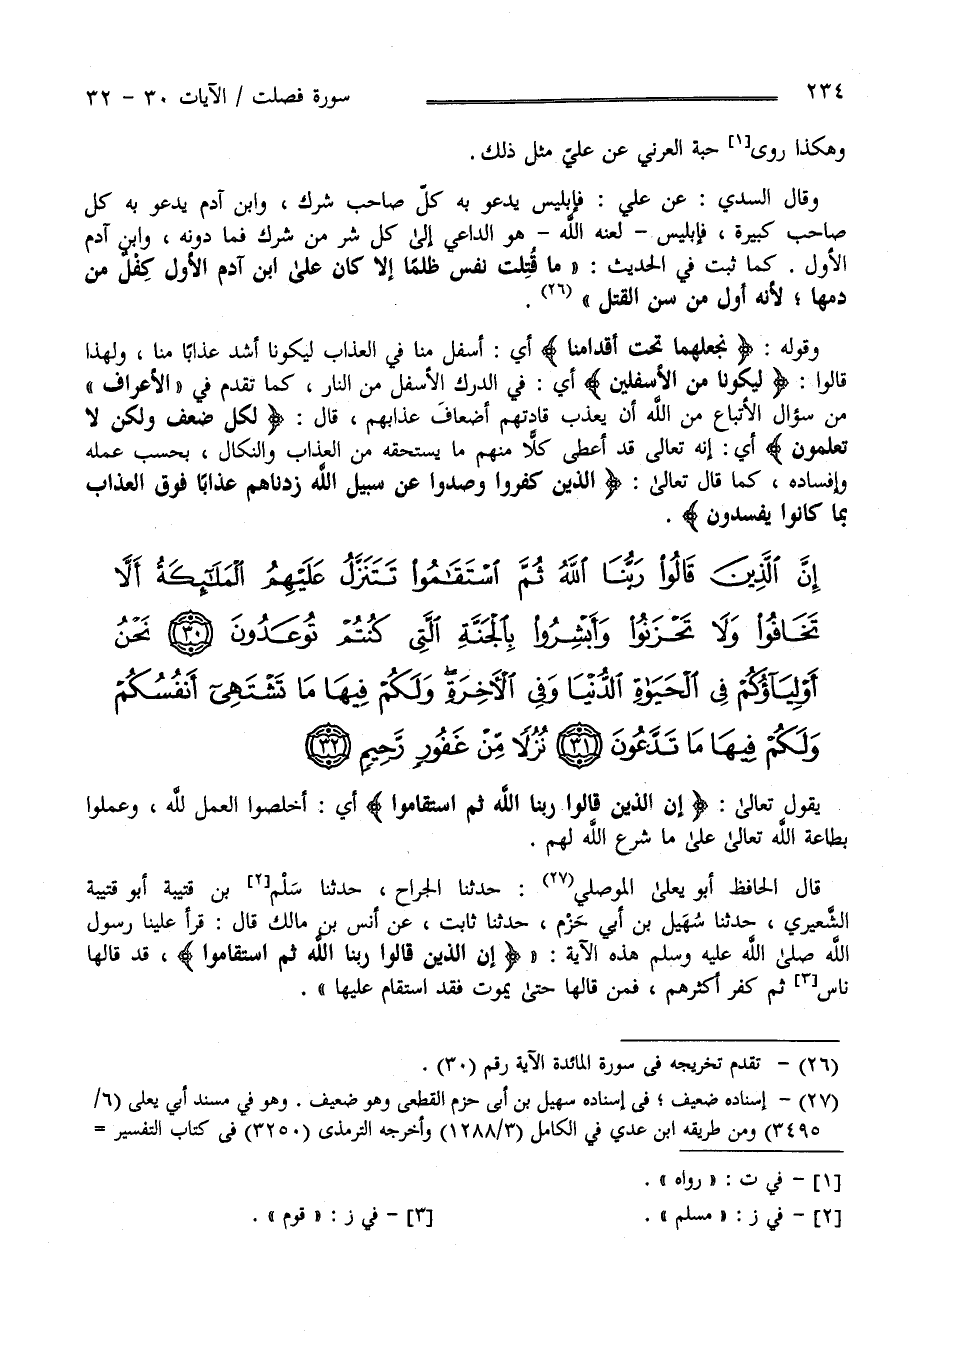 ٢٣٤ سورة فصلت / الآيات ٣٠ - ٣٢
وهكذا روى[١] حبة العرني عن عليّ مثل ذلك .
وقال السدي : عن علي : فإبليس يدعو به كلّ صاحب شرك ، وابن آدم يدعو به كل
صاحب كبيرة ، فإبليس - لعنه اللَّه - هو الداعي إلىٰ كل شر من شرك فما دونه ، وابن آدم
الأول . كما ثبت في الحديث : « ما قُتِلت نفس ظلمًا إلا كان علىٰ ابن آدم الأول كِفْلٌ من
دمها ؛ لأنه أول من سن القتل » (٢٦) .
وقوله : ﴿ نجعلهما تحت أقدامنا ﴾ أي : أسفل منا في العذاب ليكونا أشد عذابًا منا ، ولهذا
قالوا : ﴿ ليكونا من الأسفلين ﴾ أي : في الدرك الأسفل من النار ، كما تقدم في « الأعراف »
من سؤال الأتباع من اللَّه أن يعذب قادتهم أضعافَ عذابهم ، قال : ﴿ لكل ضعف ولكن لا
تعلمون ﴾ أي : إنه تعالى قد أعطى كلًّا منهم ما يستحقه من العذاب والنكال ، بحسب عمله
وإفساده ، كما قال تعالىٰ : ﴿ الذين كفروا وصدوا عن سبيل اللَّه زدناهم عذابًا فوق العذاب
بما كانوا يفسدون ﴾ .
إِنَّ ٱلَّذِينَ قَالُوا۟ رَبُّنَا ٱللَّهُ ثُمَّ ٱسْتَقَـٰمُوا۟ تَتَنَزَّلُ عَلَيْهِمُ ٱلْمَلَـٰٓئِكَةُ أَلَّا
تَخَافُوا۟ وَلَا تَحْزَنُوا۟ وَأَبْشِرُوا۟ بِٱلْجَنَّةِ ٱلَّتِى كُنتُمْ تُوعَدُونَ ﴿٣٠﴾ نَحْنُ
أَوْلِيَآؤُكُمْ فِى ٱلْحَيَوٰةِ ٱلدُّنْيَا وَفِى ٱلْـَٔاخِرَةِ ۖ وَلَكُمْ فِيهَا مَا تَشْتَهِىٓ أَنفُسُكُمْ
وَلَكُمْ فِيهَا مَا تَدَّعُونَ ﴿٣١﴾ نُزُلًا مِّنْ غَفُورٍ رَّحِيمٍ ﴿٣٢﴾
يقول تعالىٰ : ﴿ إن الذين قالوا ربنا اللَّه ثم استقاموا ﴾ أي : أخلصوا العمل للَّه ، وعملوا
بطاعة اللَّه تعالىٰ علىٰ ما شرع اللَّه لهم .
قال الحافظ أبو يعلىٰ الموصلي(٢٧) : حدثنا الجراح ، حدثنا سَلْم[٢] بن قتيبة أبو قتيبة
الشَّعيري ، حدثنا سُهَيل بن أبي حَزْم ، حدثنا ثابت ، عن أنس بن مالك قال : قرأ علينا رسول
اللَّه صلىٰ اللَّه عليه وسلم هذه الآية : « ﴿ إن الذين قالوا ربنا اللَّه ثم استقاموا ﴾ ، قد قالها
ناس[٣] ثم كفر أكثرهم ، فمن قالها حتىٰ يموت فقد استقام عليها » .
(٢٦) - تقدم تخريجه فى سورة المائدة الآية رقم (٣٠) .
(٢٧) - إسناده ضعيف ؛ فى إسناده سهيل بن أبى حزم القطعى وهو ضعيف . وهو في مسند أبي يعلى (٦/
٣٤٩٥) ومن طريقه ابن عدي في الكامل (١٢٨٨/٣) وأخرجه الترمذى (٣٢٥٠) فى كتاب التفسير =
[١] - في ت : « رواه » .
[٢] - في ز : « مسلم » . [٣] - في ز : « قوم » .